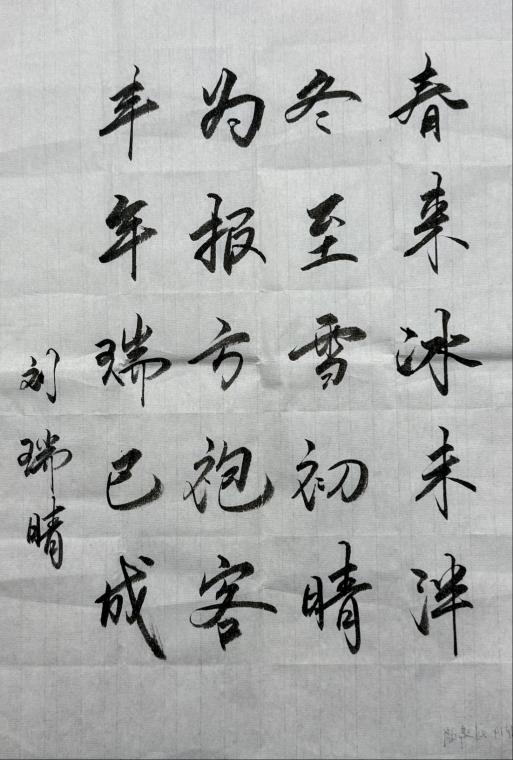 春来冰未泮
冬至雪初晴
为报方袍客
丰年瑞已成
刘瑞晴